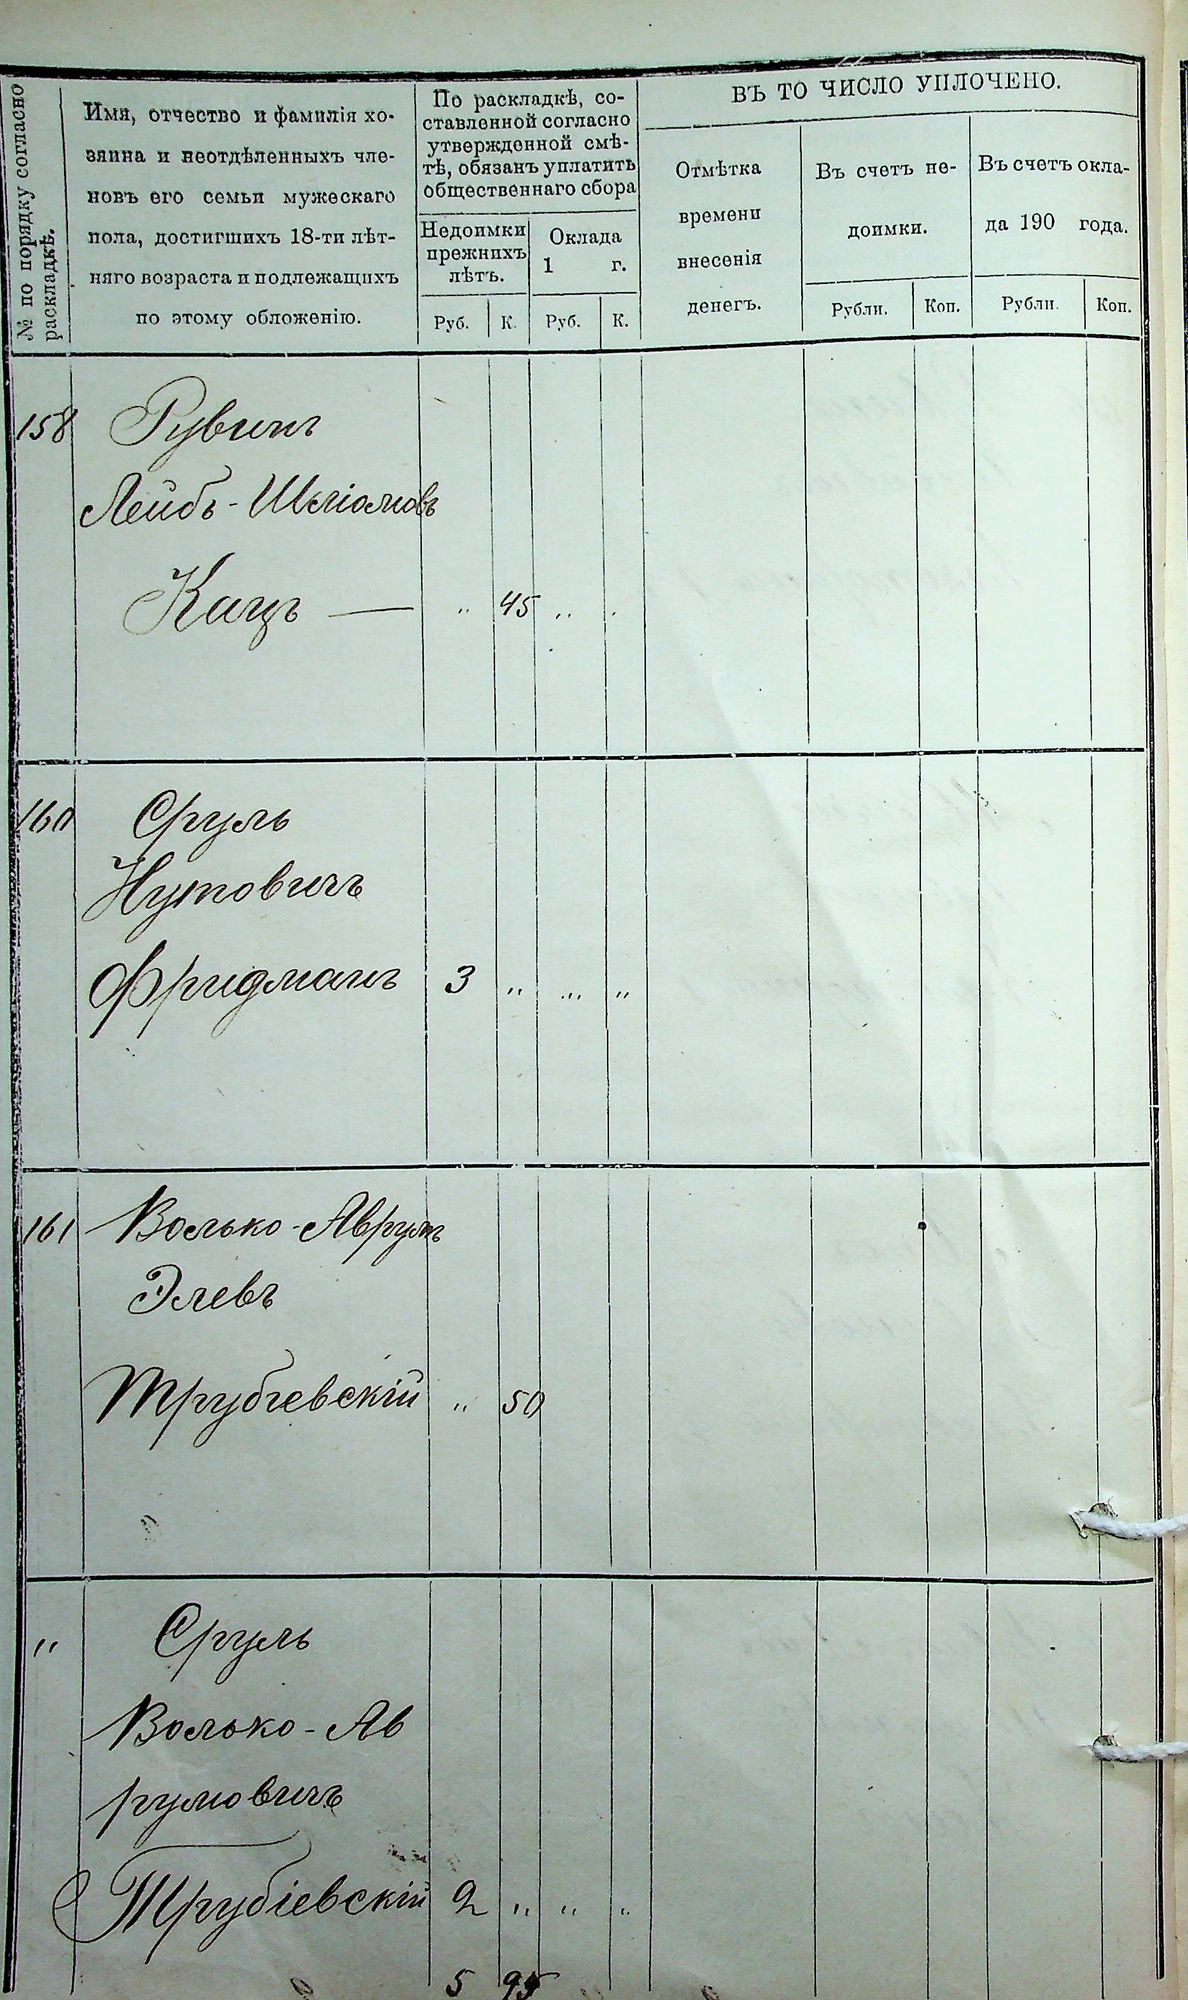 № по порядку согласно
раскладкѣ.
Имя, отчество и фамилія хо-
зяина и неотдѣленныхъ чле-
новъ его семьи мужескаго
пола, достигшихъ 18-ти лѣт-
няго возраста и подлежащихъ
по этому обложенію.
По раскладкѣ, со-
ставленной согласно
утвержденной смѣ-
тѣ, обязанъ уплатить
общественнаго сбора
Недоимки
прежнихъ
лѣтъ.
Оклада
1 г.
Руб. К. Руб. К.
ВЪ ТО ЧИСЛО УПЛОЧЕНО.
Отмѣтка
времени
внесенія
денегъ.
Въ счетъ не-
доимки.
Въ счетъ окла-
да 190 года.
Рубли. Коп. Рубли. Коп.
158 Рувинъ
Лейбъ-Шліомовъ
Кацъ — " 45 " "
160 Сруль
Нутовичъ
Фридманъ 3 " " "
161 Волько-Аврумъ
Элевъ
Трубіевскій " 50
" Сруль
Волько-Ав
румовичъ
Трубіевскій 2 " " "
5 95